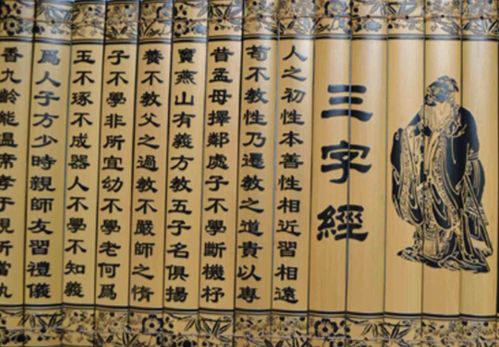 三字經
人之初性本善性相近習相遠
苟不教性乃遷教之道貴以專
昔孟母擇鄰處子不學斷機杼
竇燕山有義方教五子名俱揚
養不教父之過教不嚴師之惰
子不學非所宜幼不學老何爲
玉不琢不成器人不學不知義
爲人子方少時親師友習禮儀
香九齡能溫席孝于親所當執